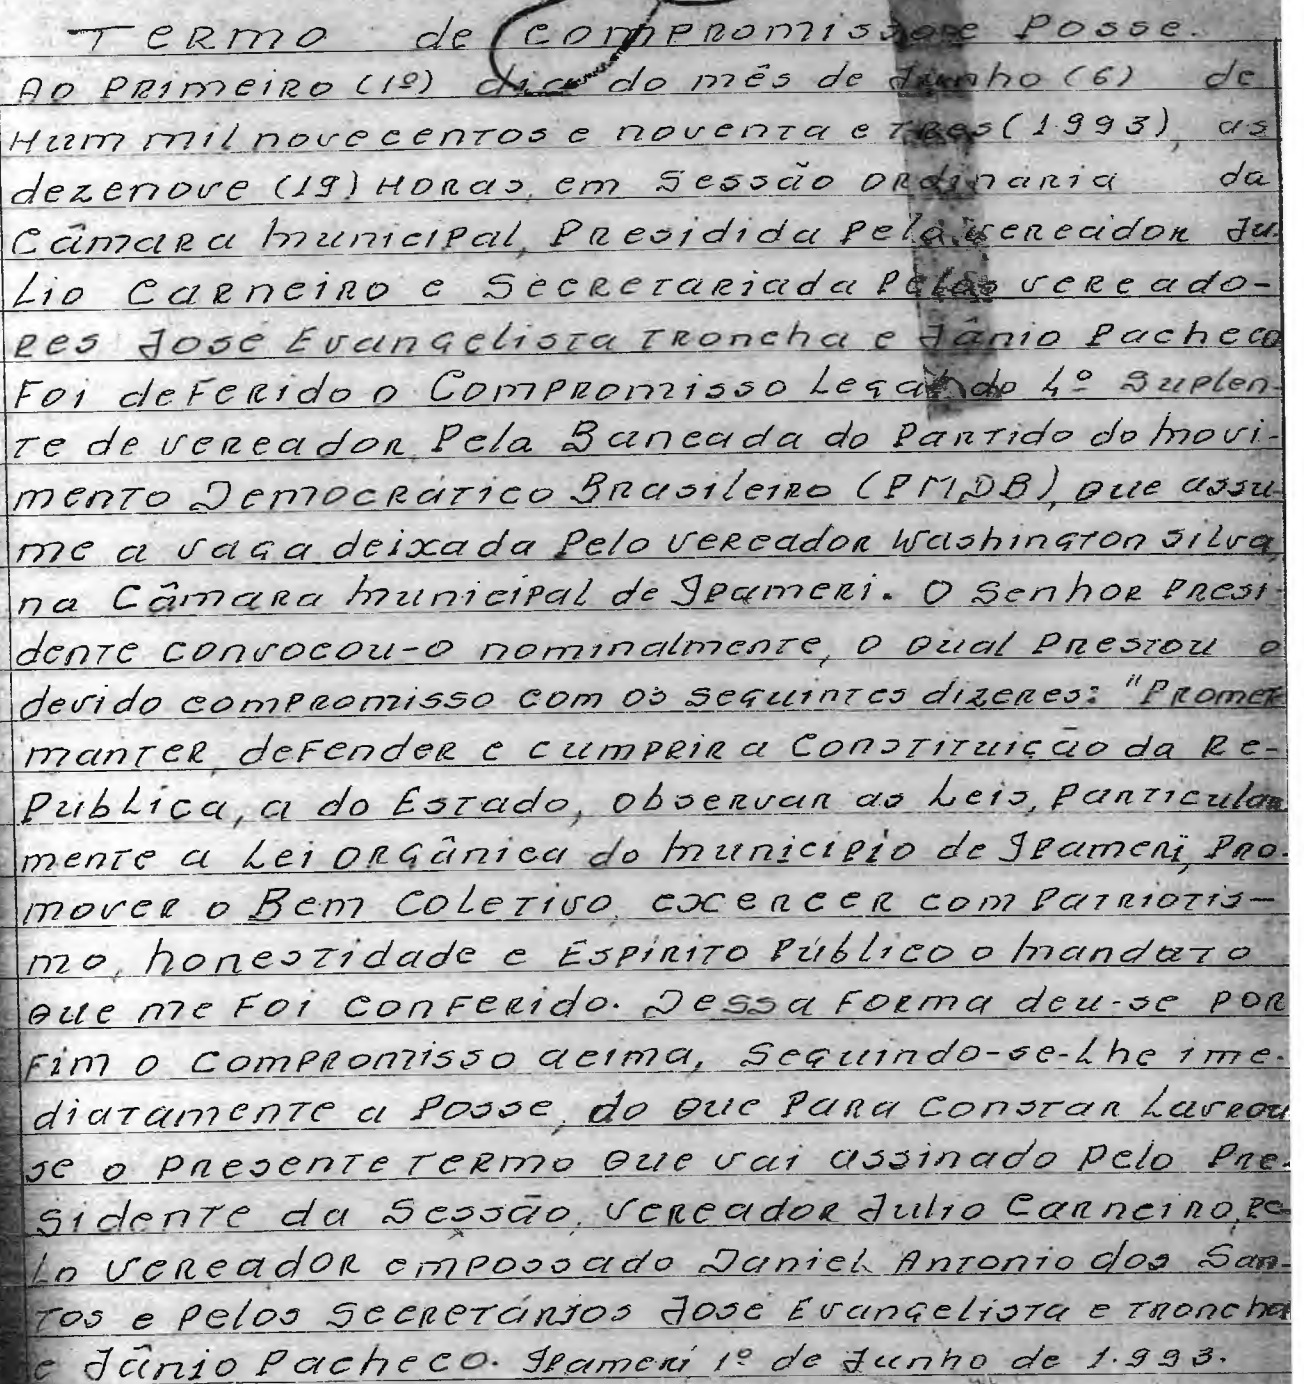 Termo de Compromisso e Posse.
Ao Primeiro (1º) dia do mês de Junho (6) de
Hum mil novecentos e noventa e tres (1993), as
dezenove (19) Horas, em Sessão ordinaria da
Câmara Municipal, Presidida pelo vereador Ju-
lio Carneiro e Secretariada pelos vereado-
res José Evangelista Troncha e Jânio Pacheco
Foi deferido o Compromisso Legal do 4º Suplen-
te de vereador, Pela Bancada do Partido do Movi-
mento Democrático Brasileiro (PMDB), que assu-
me a vaga deixada Pelo vereador Washington Silva,
na Câmara Municipal de Ipameri. O Senhor Presi-
dente convocou-o nominalmente, o qual Prestou o
devido compromisso com os seguintes dizeres: "Promet
manter, defender e cumprir a Constituição da Re-
Pública, a do Estado, observar as Leis, Particular
mente a Lei Orgânica do Município de Ipameri, Pro-
mover o Bem Coletivo, excercer com Patriotis-
mo, honestidade e Espírito Público o mandato
que me Foi conferido. Dessa Forma deu-se por
Fim o Compromisso acima, Seguindo-se-Lhe ime-
diatamente a Posse, do que Para Constar Lavrou
se o presente termo que vai assinado pelo Pre-
sidente da Sessão, Vereador Julio Carneiro, pe-
lo Vereador empossado Daniel Antonio dos San-
tos e pelos Secretários José Evangelista e Troncha
e Jânio Pacheco. Ipameri 1º de Junho de 1.993.